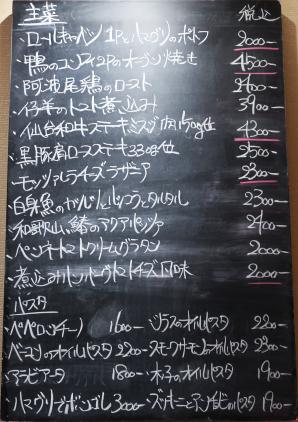 主菜 税込
ロールキャベツ1Pとハマグリのポトフ 2000-
鴨のコンフィ2Pのオーブン焼き 4500-
阿波尾鶏のロースト 2400-
仔羊のトマト煮込み 3900-
仙台和牛ステーキミスジ 150g位 4300-
黒豚肩ロースステーキ230g位 2500-
モッツァレラチーズラザニア 2300-
白身魚の タルタル 2300-
和歌山 鯖のアクアパッツァ 2400-
ペンネトマトクリームグラタン 2000-
煮込みハンバーグトマトチーズ風味 2000-
パスタ
ペペロンチーノ 1600- シラスのオイルパスタ 2200-
ベーコンのオイルパスタ 2200- スモークサーモンのオイルパスタ 2300-
アラビアータ 1800- 木の子のオイルパスタ 1900-
ハマグリでボンゴレ 3000- ズッキーニとアンチョビのパスタ 1900-